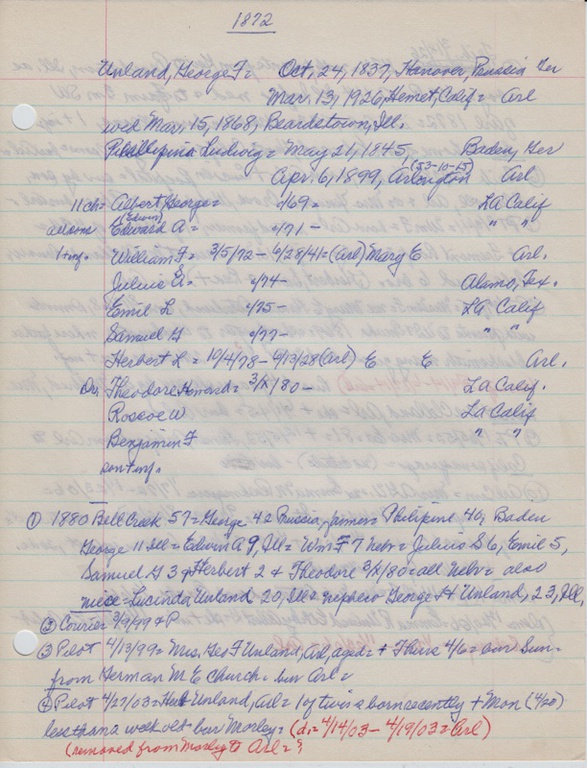 1872
Unland, George F = Oct, 24, 1837, Hanover, Prussia Ger
Mar, 13, 1926, Hemet, Calif = Arl
wed Mar, 15, 1868, Beardstown, Ill.
Phillipina Ludwig = May 21, 1845, Baden, Ger
(53-10-15)
Apr. 6, 1899, Arlington Arl
11 ch = Albert George = /69 = LA Calif
(Edwin)
Edward A = /71 - " "
1+inf. William F = 3/5/72 - 6/28/41 = (Arl) Mary E Arl.
Julius E. = /74 - Alamo, Tex.
Emil L /75 - LA, Calif
Samuel G /77 - " "
Herbert L = 10/4/78 - 4/13/28 (Arl) E E Arl.
Dr, Theodore Howard = 3/X/80 - La Calif.
Roscoe W La Calif
Benjamin F " "
son+inf.
① 1880 Bell Creek 57 = George 42 Prussia, farmer = Philipine 40, Baden
George 11 Ill = Edwin A 9, Ill = Wm F 7 Nebr = Julius S 6, Emil 5,
Samuel G 3 + Herbert 2 + Theodore 3/X/80 = all Nebr = also
niece = Lucinda Unland 20, Ill + nephew George H Unland, 23, Ill,
② Courier 3/9/99 + P
③ Pilot 4/13/99 = Mrs, Geo F Unland, Arl, aged = + Thurs 4/6 = bur Sun-
from German M E Church = bur Arl =
④ Pilot 4/27/03 = Unland, Arl = 1 of twins born recently + Mon (4/20)
less than a week old = bur Morley = (d. = 4/14/03 - 4/19/03 = Arl)
(removed from Morley to Arl = ?